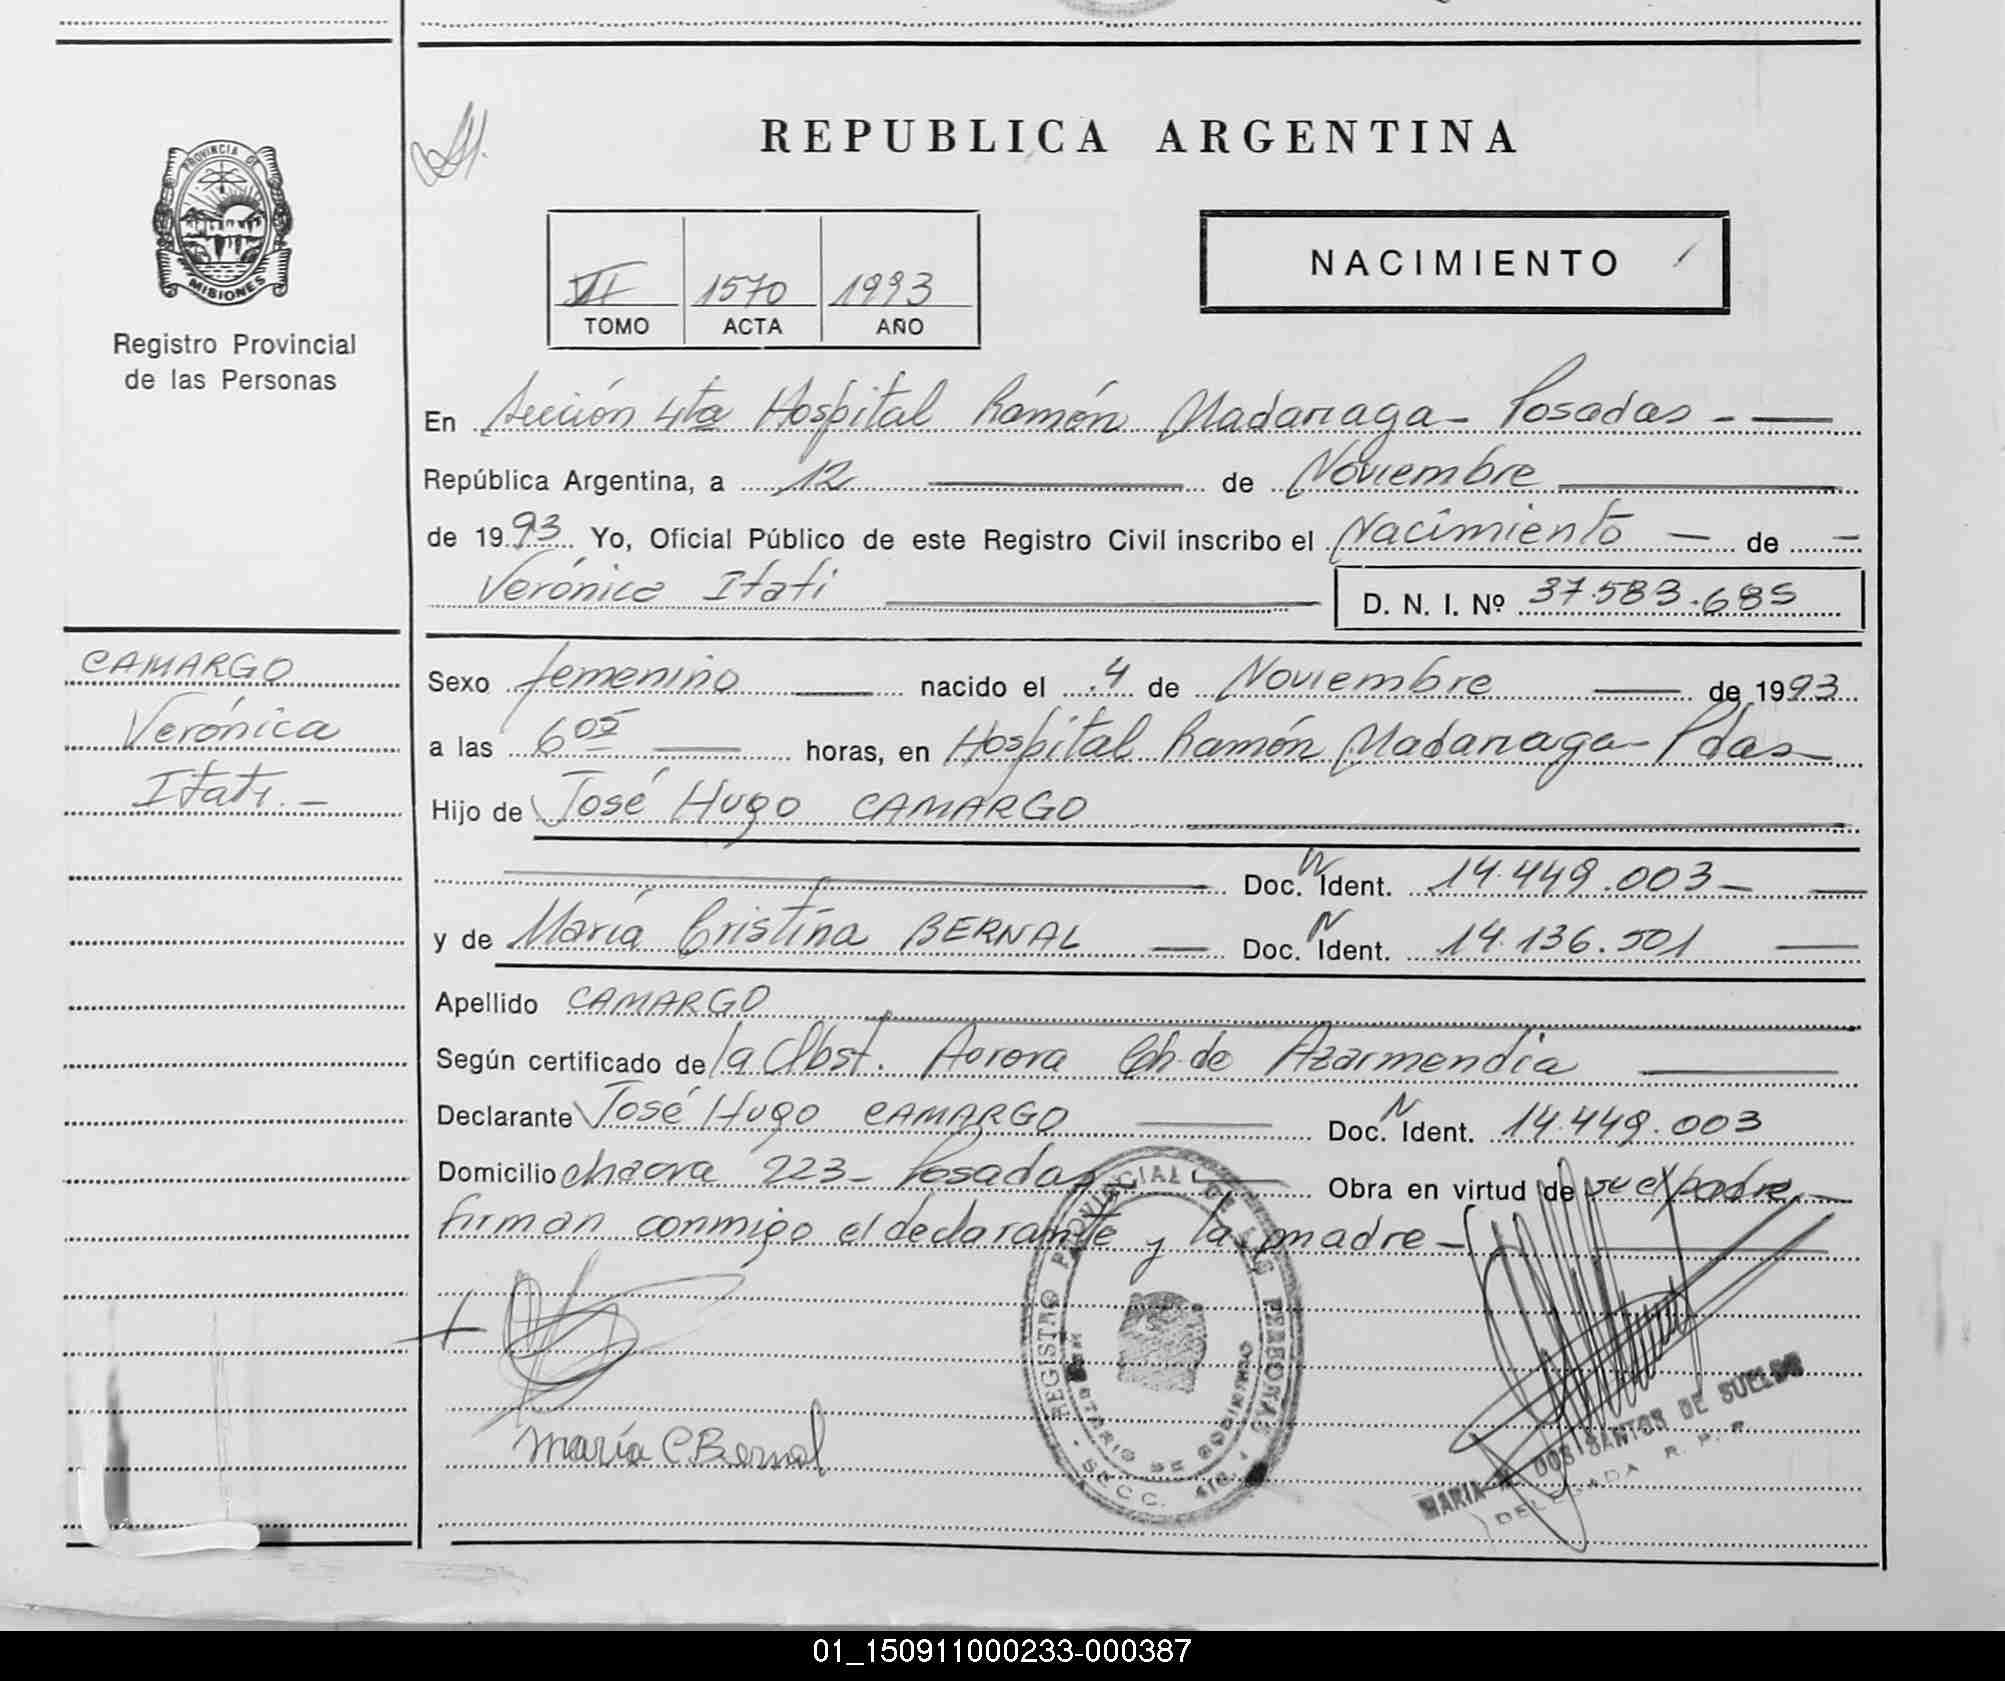 REPUBLICA ARGENTINA
PROVINCIA DE
MISIONES
Registro Provincial
de las Personas
VII 1570 1993
TOMO ACTA AÑO
NACIMIENTO
En Sección 4ta Hospital Ramón Madariaga - Posadas -
República Argentina, a 12 de Noviembre
de 1993 Yo, Oficial Público de este Registro Civil inscribo el Nacimiento de
Verónica Itatí D. N. I. Nº 37.583.685
CAMARGO
Verónica
Itatí.-
Sexo femenino nacido el 4 de Noviembre de 1993
a las 6 05 horas, en Hospital Ramón Madariaga - Pdas
Hijo de José Hugo CAMARGO
Doc. N Ident. 14.449.003
y de María Cristina BERNAL Doc. N Ident. 14.136.501
Apellido CAMARGO
Según certificado de la Obst. Aurora Ch. de Azarmendia
Declarante José Hugo CAMARGO Doc. N Ident. 14.449.003
Domicilio 223 - Posadas Obra en virtud de padre
firman conmigo el declarante y la madre -
María C Bernal
REGISTRO PROVINCIAL DE LAS PERSONAS
SECC. 4ta
MARIA DOS SANTOS DE
DELEGADA R. P. P.
01_150911000233-000387